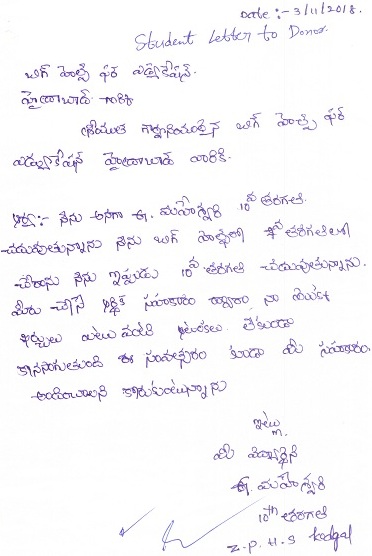 Date :- 3/11/2018.
Student Letter to Donor
బిగ్ హెల్ప్ ఫర్ ఎడ్యుకేషన్.
హైదరాబాద్ గారికి
గౌరవనీయులైన బిగ్ హెల్ప్ ఫర్
ఎడ్యుకేషన్ హైదరాబాద్ వారికి.
నేను అనగా ఈ. మహేశ్వరి 10వ తరగతి
చదువుతున్నాను నేను బిగ్ హెల్ప్‌లో తరగతిలో
చేరాను నేను ఇప్పుడు 10వ తరగతి చదువుతున్నాను.
మీరు చేసే ఆర్థిక సహకారం ద్వారా నా యొక్క
ఎటువంటి ఆటంకలు లేకుండా
కొనసాగుతుంది ఈ సంవత్సరం కూడా మీ సహకారం
అందించాలని కోరుకుంటున్నాను
ఇట్లు,
మీ
ఈ. మహేశ్వరి
10th తరగతి
Z.P.H.S Kodgal